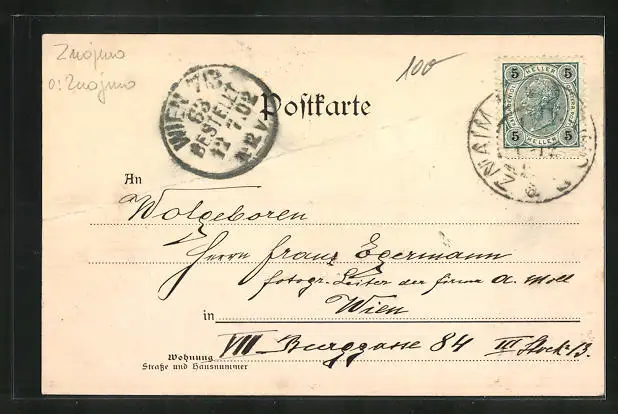 Znojmo
o: Znojmo
100
WIEN 7/3
63
BESTELLT
12 7.02
5 HELLER 5
5 HELLER 5
ZNAIM
Postkarte
An
Wolgeboren
Herrn Franz Egermann
fotogr. Leiter der firma A. Moll
in Wien
VII Burggasse 84 III Stock 13.
Wohnung
Straße und Hausnummer